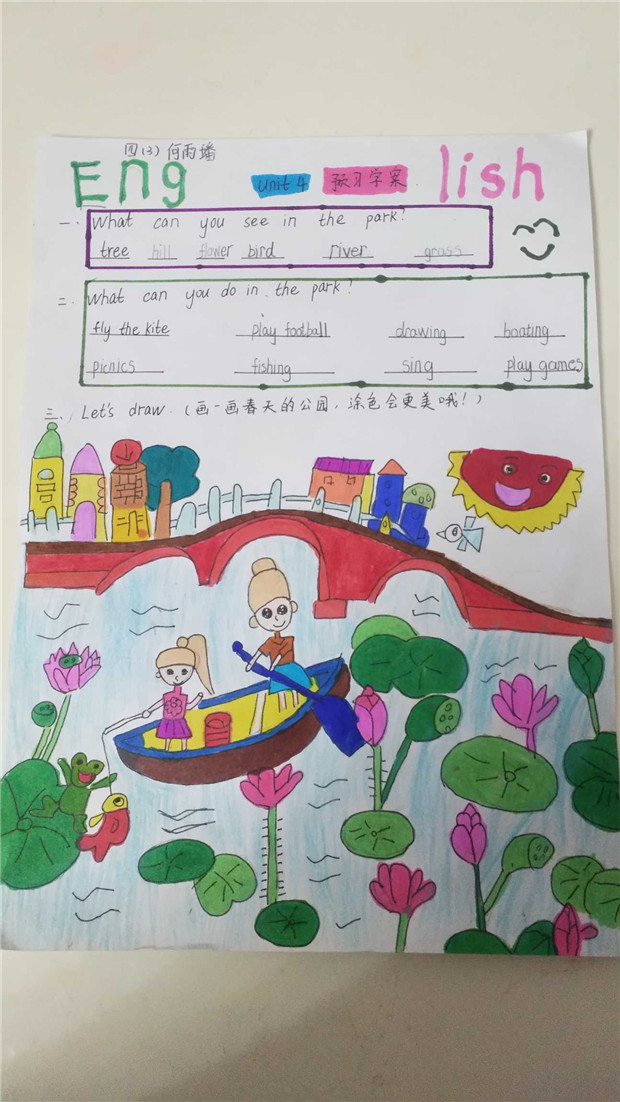 四(3) 何雨墦
English
Unit 4 预习学案
一. What can you see in the park?
tree hill flower bird river grass
二. What can you do in the park?
fly the kite play football drawing boating
picnics fishing sing play games
三. Let's draw. (画一画春天的公园,涂色会更美哦!)